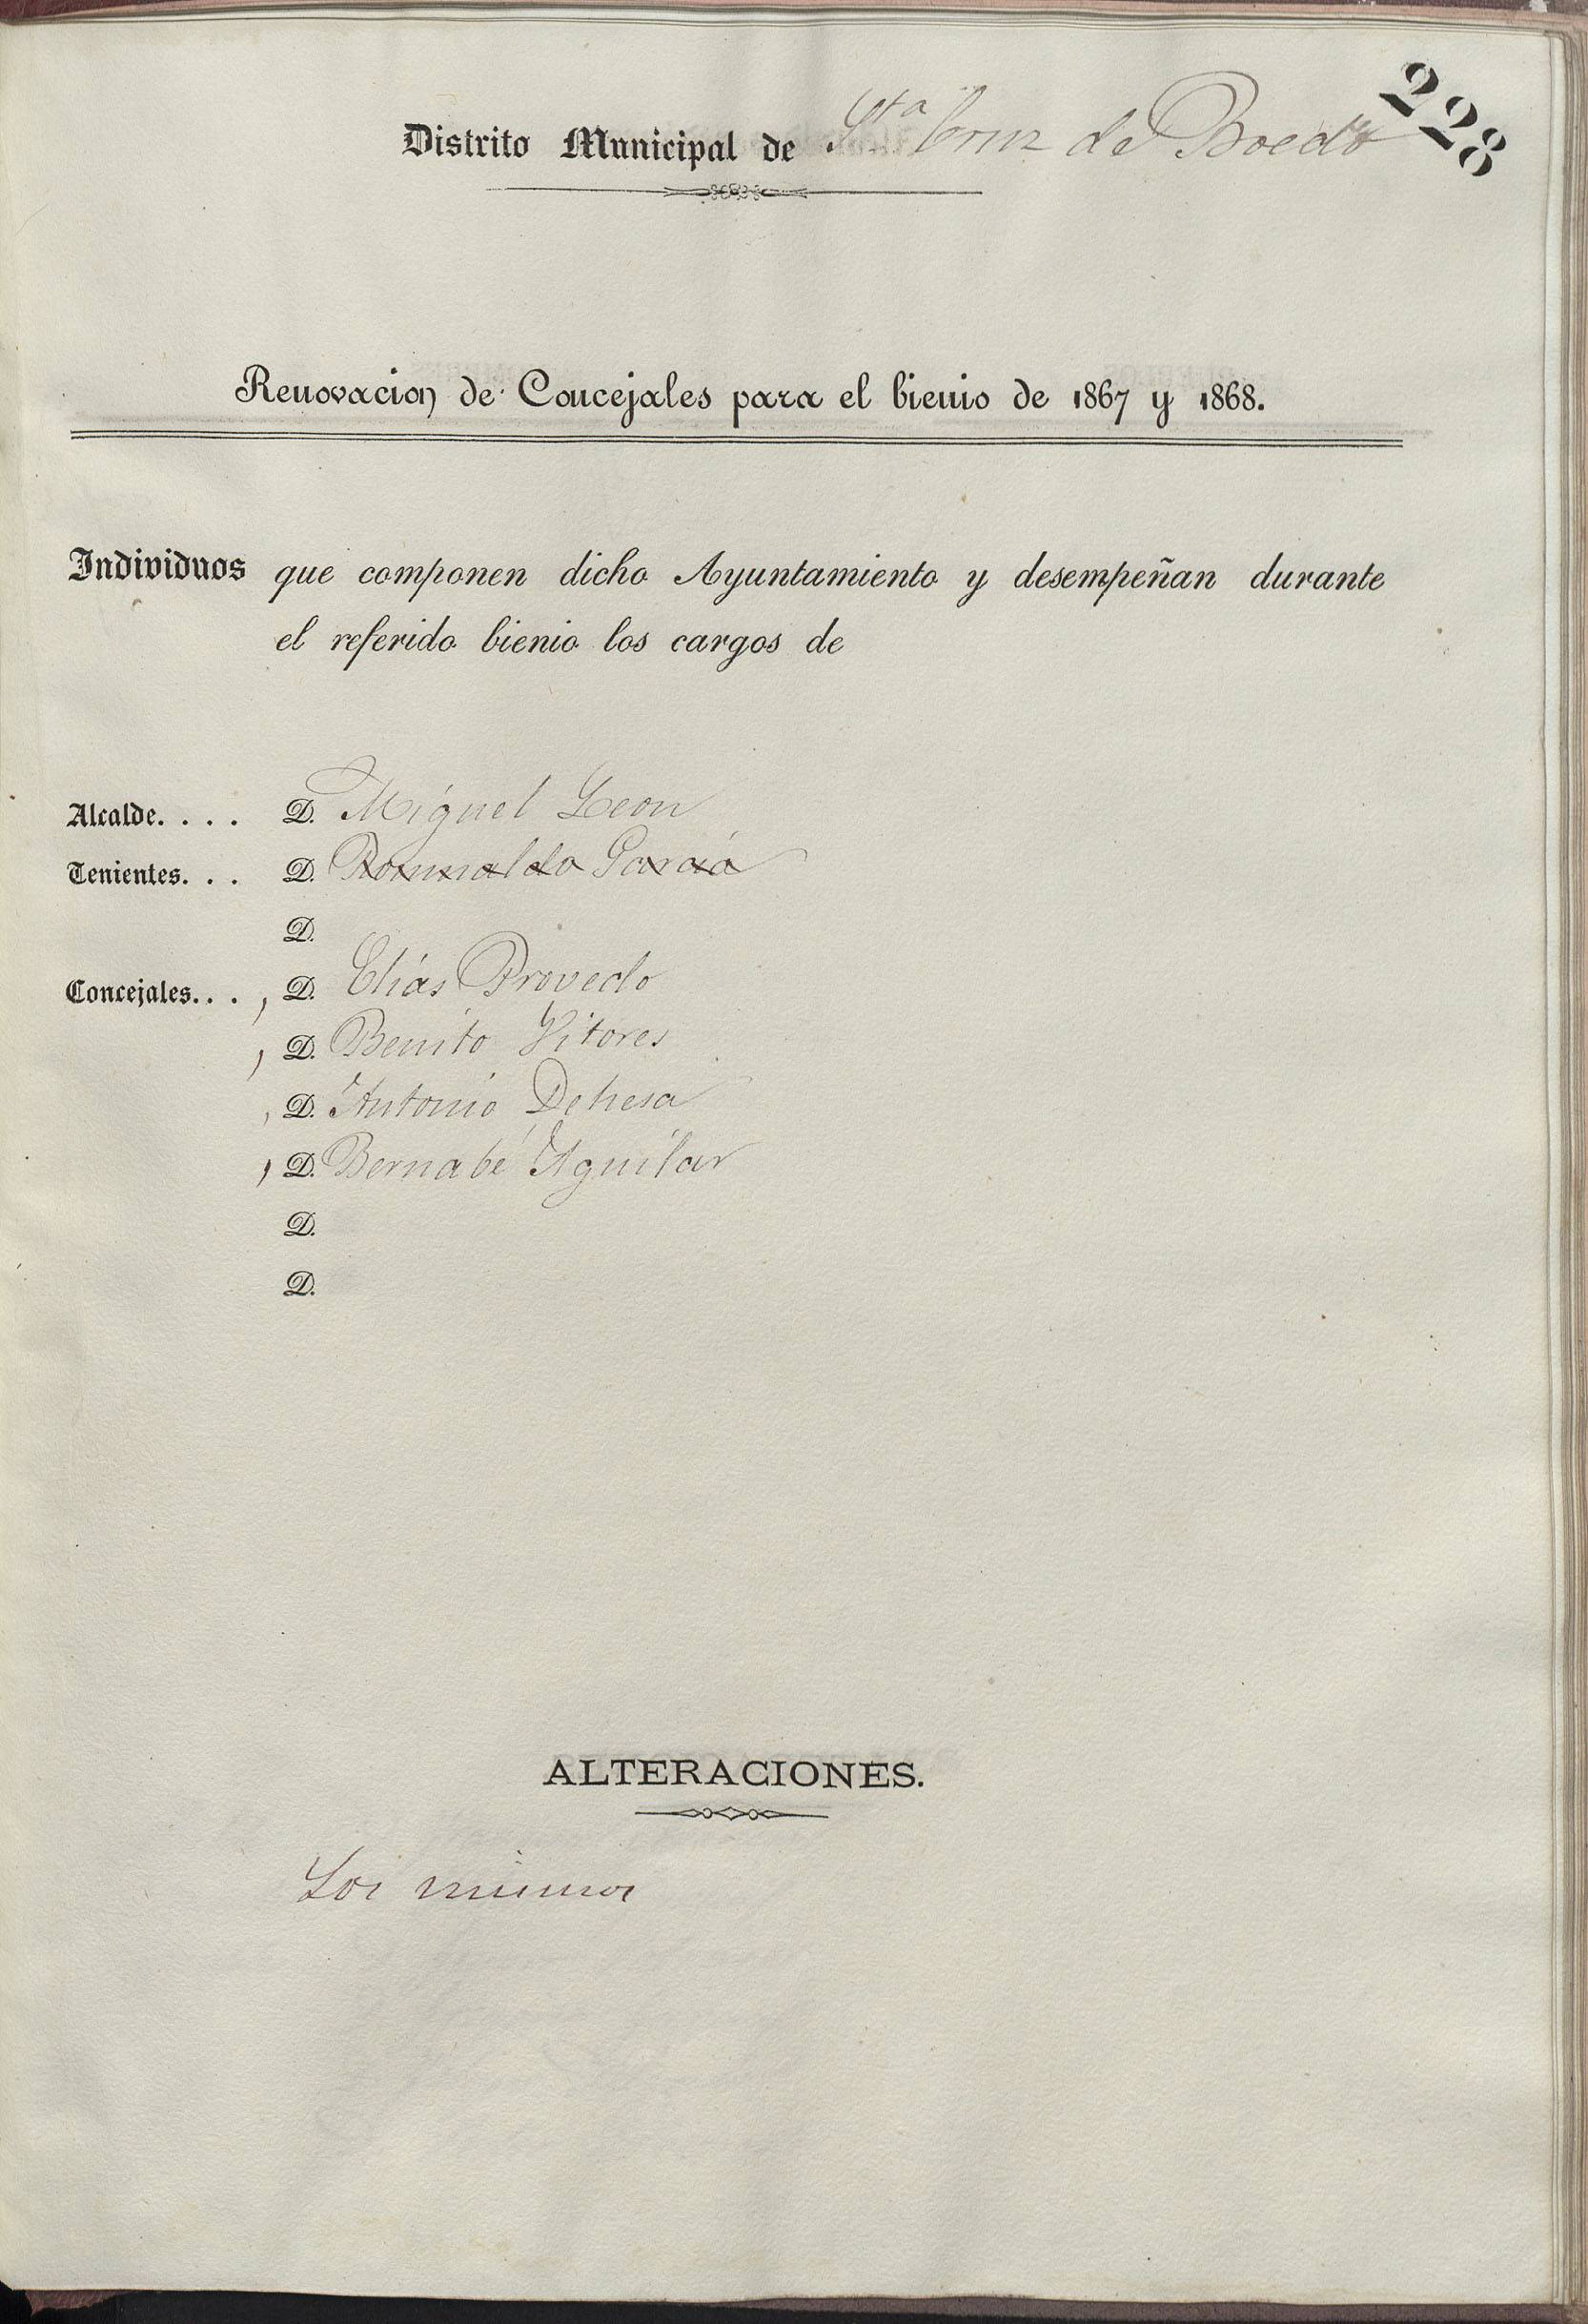 228
Distrito Municipal de Sta Cruz de Boedo
Renovacion de Concejales para el bienio de 1867 y 1868.
Individuos que componen dicho Ayuntamiento y desempeñan durante
el referido bienio los cargos de
Alcalde. . . . D. Miguel Leon
Tenientes. . . D. Romualdo García
D.
Concejales. . . , D. Elías Provedo
, D. Benito Vitores
, D. Antonio Dehesa
, D. Bernabé Aguilar
D.
D.
ALTERACIONES.
Los mismos